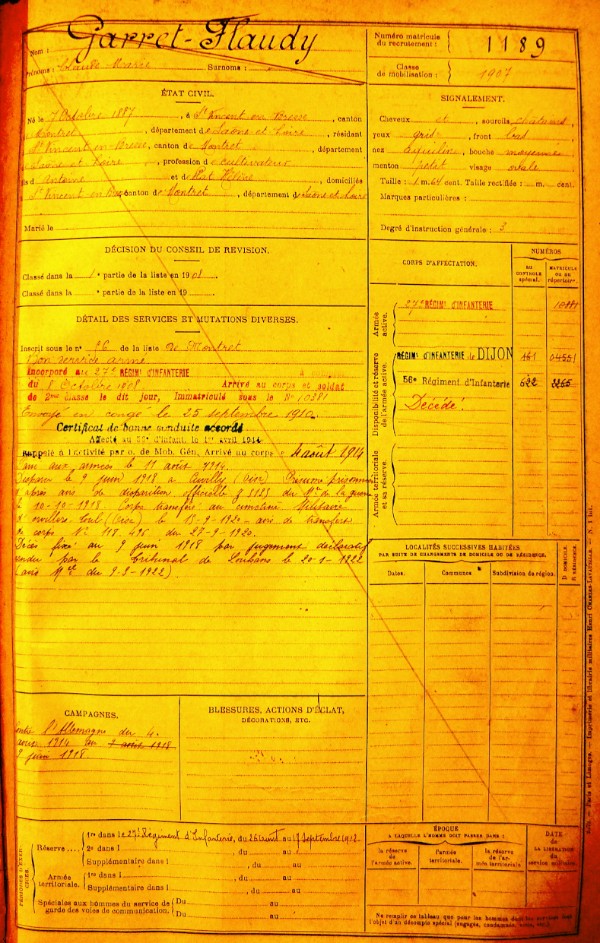 Garret-Flaudy
Nom :
Prénoms : Claude Marie Surnoms :
Numéro matricule
du recrutement :
1189
Classe
de mobilisation :
1907
ÉTAT CIVIL.
Né le 7 Octobre 1887, à St Vincent en Bresse, canton
de Montret, département de Saône et Loire, résidant
à St Vincent en Bresse, canton de Montret, département
de Saône et Loire, profession de cultivateur
fils d Antoine et de Hélène, domiciliés
à St Vincent en Bresse, canton de Montret, département de Saône et Loire
Marié le
SIGNALEMENT.
Cheveux et sourcils châtains,
yeux gris, front bas
nez aquilin, bouche moyenne
menton petit visage ovale
Taille : 1 m. 64 cent. Taille rectifiée : m. cent.
Marques particulières :
Degré d'instruction générale : 3
DÉCISION DU CONSEIL DE REVISION.
Classé dans la 1e partie de la liste en 1908
Classé dans la e partie de la liste en 19
DÉTAIL DES SERVICES ET MUTATIONS DIVERSES.
Inscrit sous le n° de la liste de Montret
Bon service armé
Incorporé au 27e RÉGIMt D'INFANTERIE à
du 8 Octobre 1908. Arrivé au corps et soldat
de 2me Classe le dit jour, Immatriculé sous le No 10381
Envoyé en congé le 25 septembre 1910.
Certificat de bonne conduite accordé
Affecté au 56e d'Infant. le 1er avril 1914
Rappelé à l'activité par o. de Mob. Gén. Arrivé au corps le 4 août 1914
aux armées le 11 août 1914.
Disparu le 9 juin 1918 à (Oise) Présumé prisonnier
d'après avis de disparition officielle No de la guerre
du 10-10-1918 Corps transféré au cimetière Militaire
(Oise) le 15-9-1920 avis de transfert
de corps No 118 496 du 28-9-1920.
Décès fixé au 9 juin 1918 par jugement déclaratif
rendu par le tribunal de Louhans le 20-1-1922
(avis Mel du 9-3-1922)
CORPS D'AFFECTATION.
NUMÉROS
AU CONTROLE spécial.
MATRICULE OU AU répertoire.
Armée active.
27e RÉGIMt D'INFANTERIE
Disponibilité et réserve de l'armée active.
RÉGIMt D'INFANTERIE de DIJON
56e Régiment d'Infanterie
Décédé
Armée territoriale et sa réserve.
LOCALITÉS SUCCESSIVES HABITÉES
PAR SUITE DE CHANGEMENTS DE DOMICILE OU DE RÉSIDENCE.
Dates. Communes. Subdivision de région. D DOMICILE R RÉSIDENCE.
CAMPAGNES.
Contre l'Allemagne du 4
août 1914 au
9 juin 1918.
BLESSURES, ACTIONS D'ÉCLAT,
DÉCORATIONS, ETC.
PÉRIODES D'EXERCICES.
Réserve....
1re dans le 27e Régiment d'Infanterie, du 26 août au septembre 1912
2e dans l , du au
Supplémentaire dans l , du au
Armée territoriale.
1re dans l , du au
Supplémentaire dans l , du au
Spéciales aux hommes du service de
garde des voies de communication.
Du au
Du au
ÉPOQUE
A LAQUELLE L'HOMME DOIT PASSER DANS :
la réserve de l'armée active.
l'armée territoriale.
la réserve de l'armée territoriale.
DATE
DE LA LIBÉRATION
du service militaire.
Paris et Limoges. — Imprimerie et librairie militaires Henri CHARLES-LAVAUZELLE. —